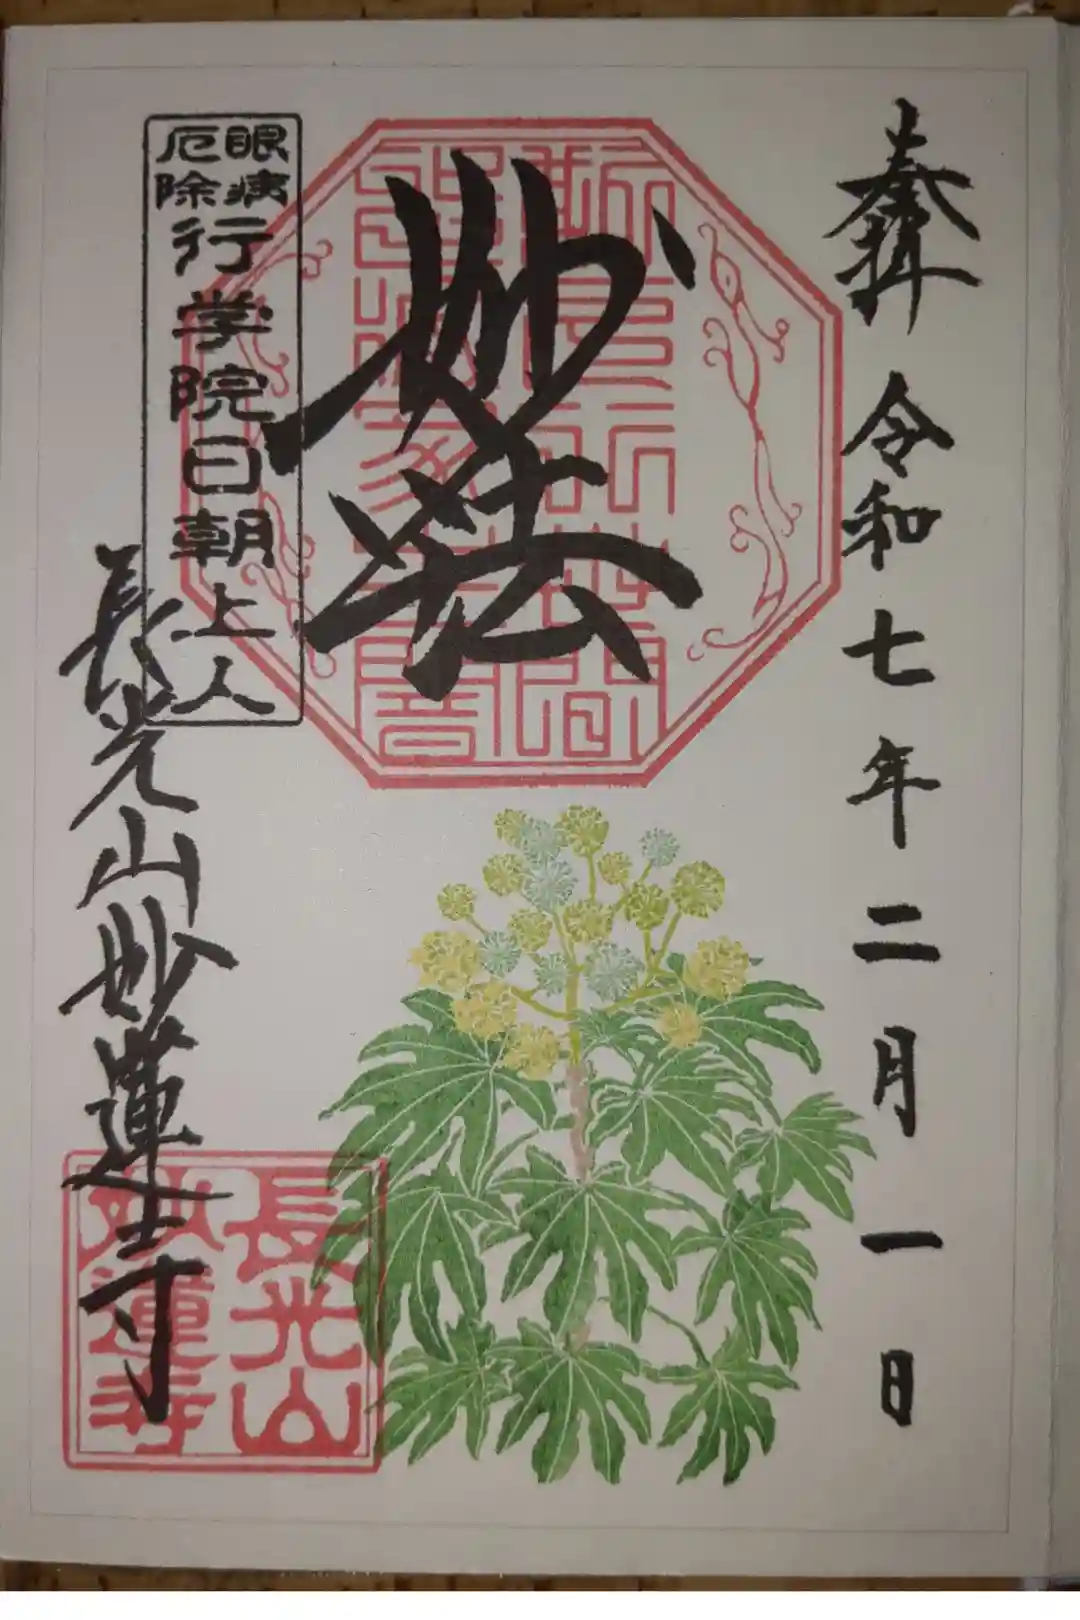 奉拝
令和七年二月一日
妙法
眼病
厄除
行学院日朝上人
長光山妙蓮寺
長光山
妙蓮寺